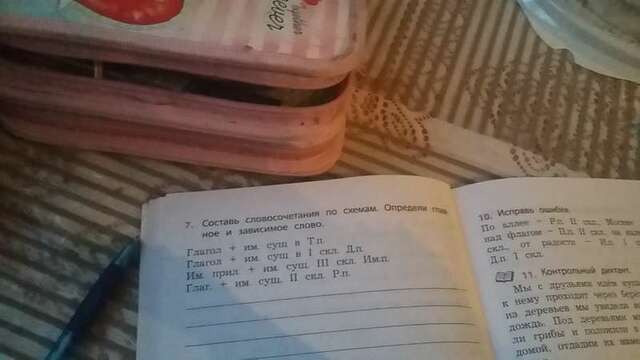 7. Составь словосочетания по схемам. Определи глав-
ное и зависимое слово.
Глагол + им. сущ в Т.п.
Глагол + им. сущ. в I скл. Д.п.
Им. прил. + им. сущ. III скл. Им.п.
Глаг. + им. сущ. II скл. Р.п.
10. Исправь ошибки.
По аллее - Р.п. II скл.,
над флагом - П.п. II скл.,
скл., от радости - И.п.
Д.п. 1 скл.
11. Контрольный диктант.
Мы с друзьями идём
к нему проходит через
на деревьях мы увидели
дождь. Под деревьями
ли грибы и положили
домой, отдадим их